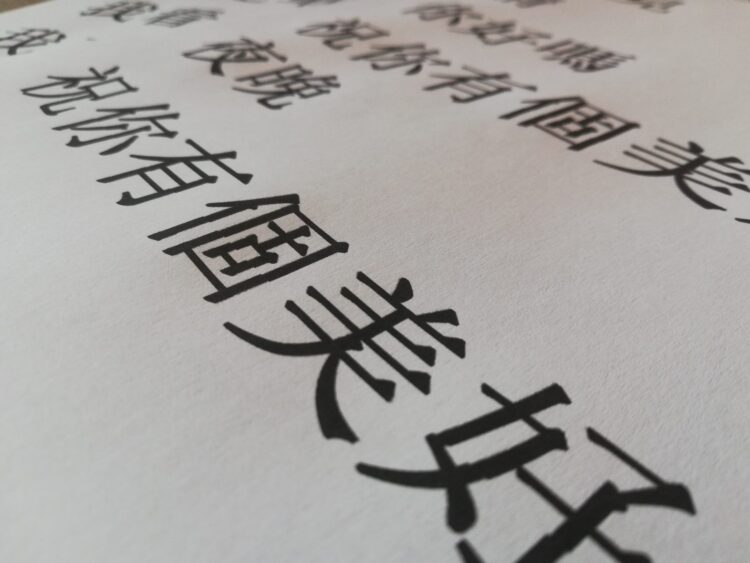 你好嗎
祝你有個美
我看
夜晚
我
祝你有個美好